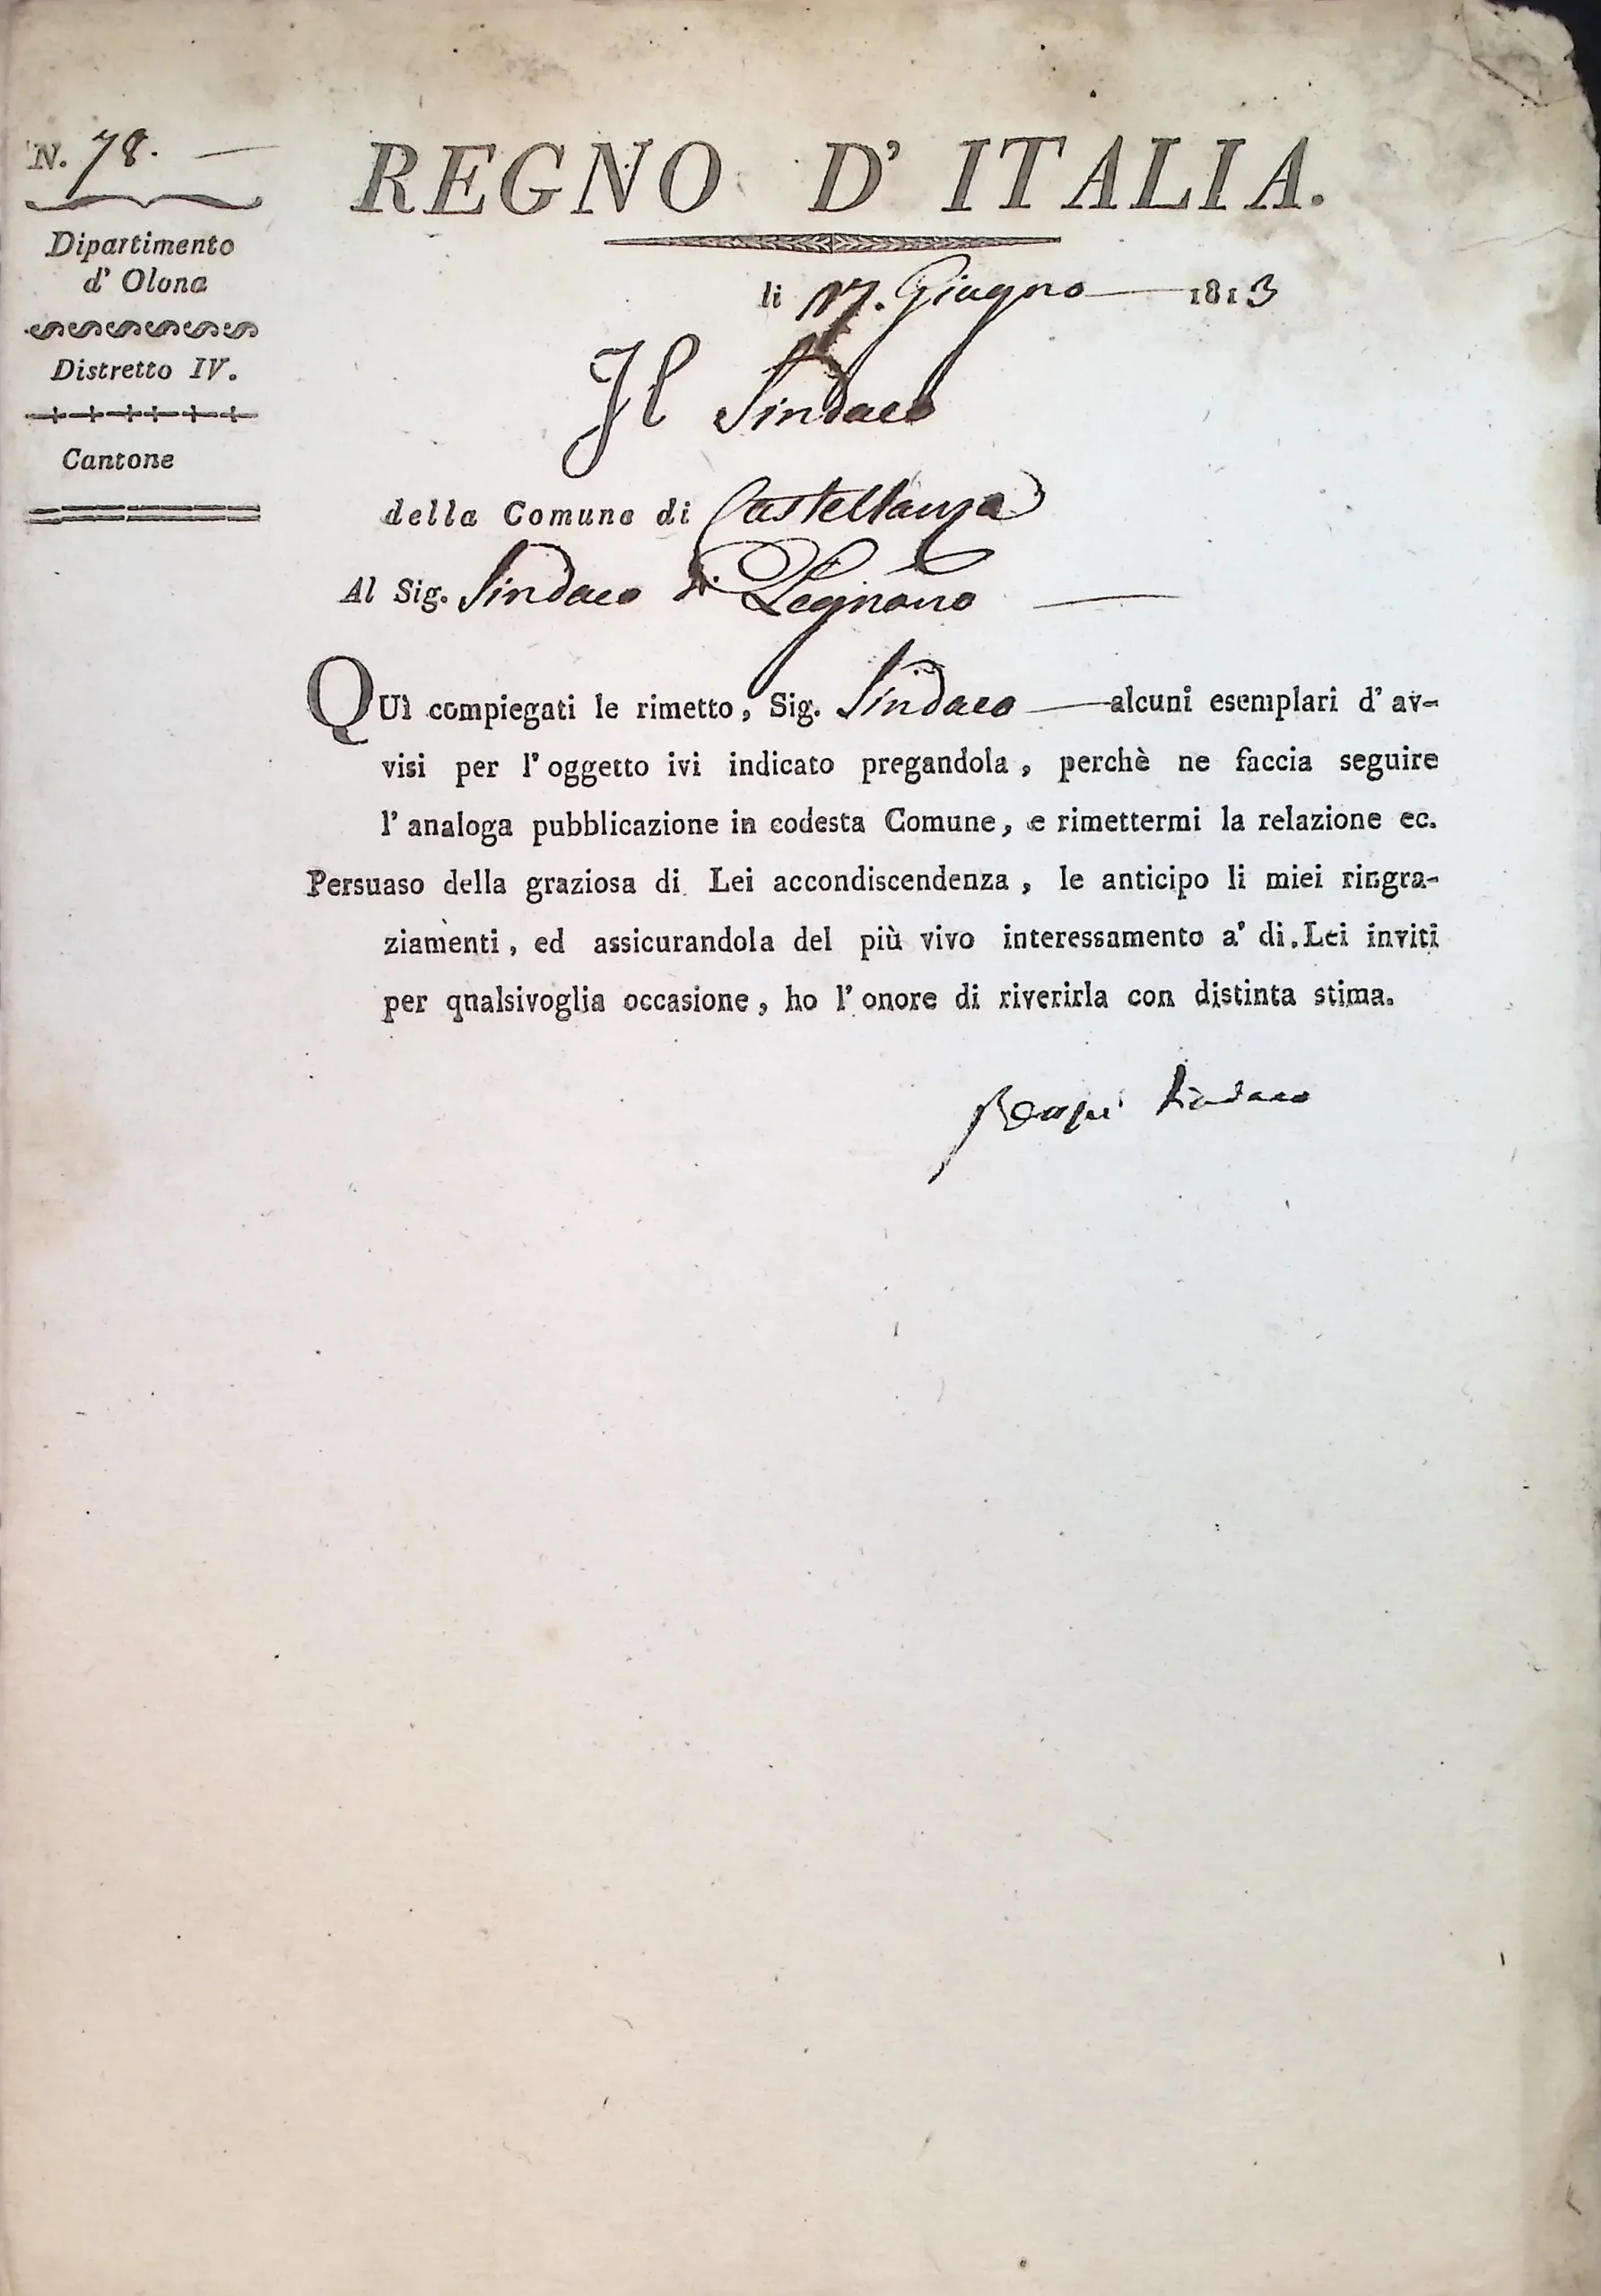 N. 78.
Dipartimento
d' Olona
Distretto IV.
Cantone
REGNO D' ITALIA.
li 17. Giugno 1813
Il Sindaco
della Comune di Castellanza
Al Sig. Sindaco di Legnano
QUì compiegati le rimetto, Sig. Sindaco alcuni esemplari d' av-
visi per l' oggetto ivi indicato pregandola, perchè ne faccia seguire
l' analoga pubblicazione in codesta Comune, e rimettermi la relazione ec.
Persuaso della graziosa di Lei accondiscendenza, le anticipo li miei ringra-
ziamenti, ed assicurandola del più vivo interessamento a' di Lei inviti
per qualsivoglia occasione, ho l' onore di riverirla con distinta stima.
Sindaco